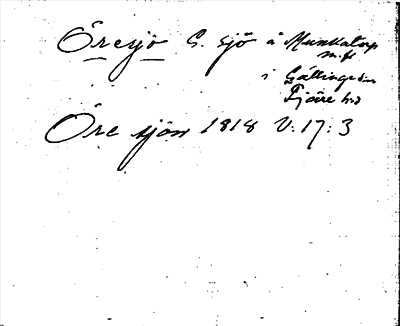 Öresjö G. sjö å Munkatorp
m. fl.
i Gällinge sn
Fjäre hd
Öre sjön 1818 V: 17: 3